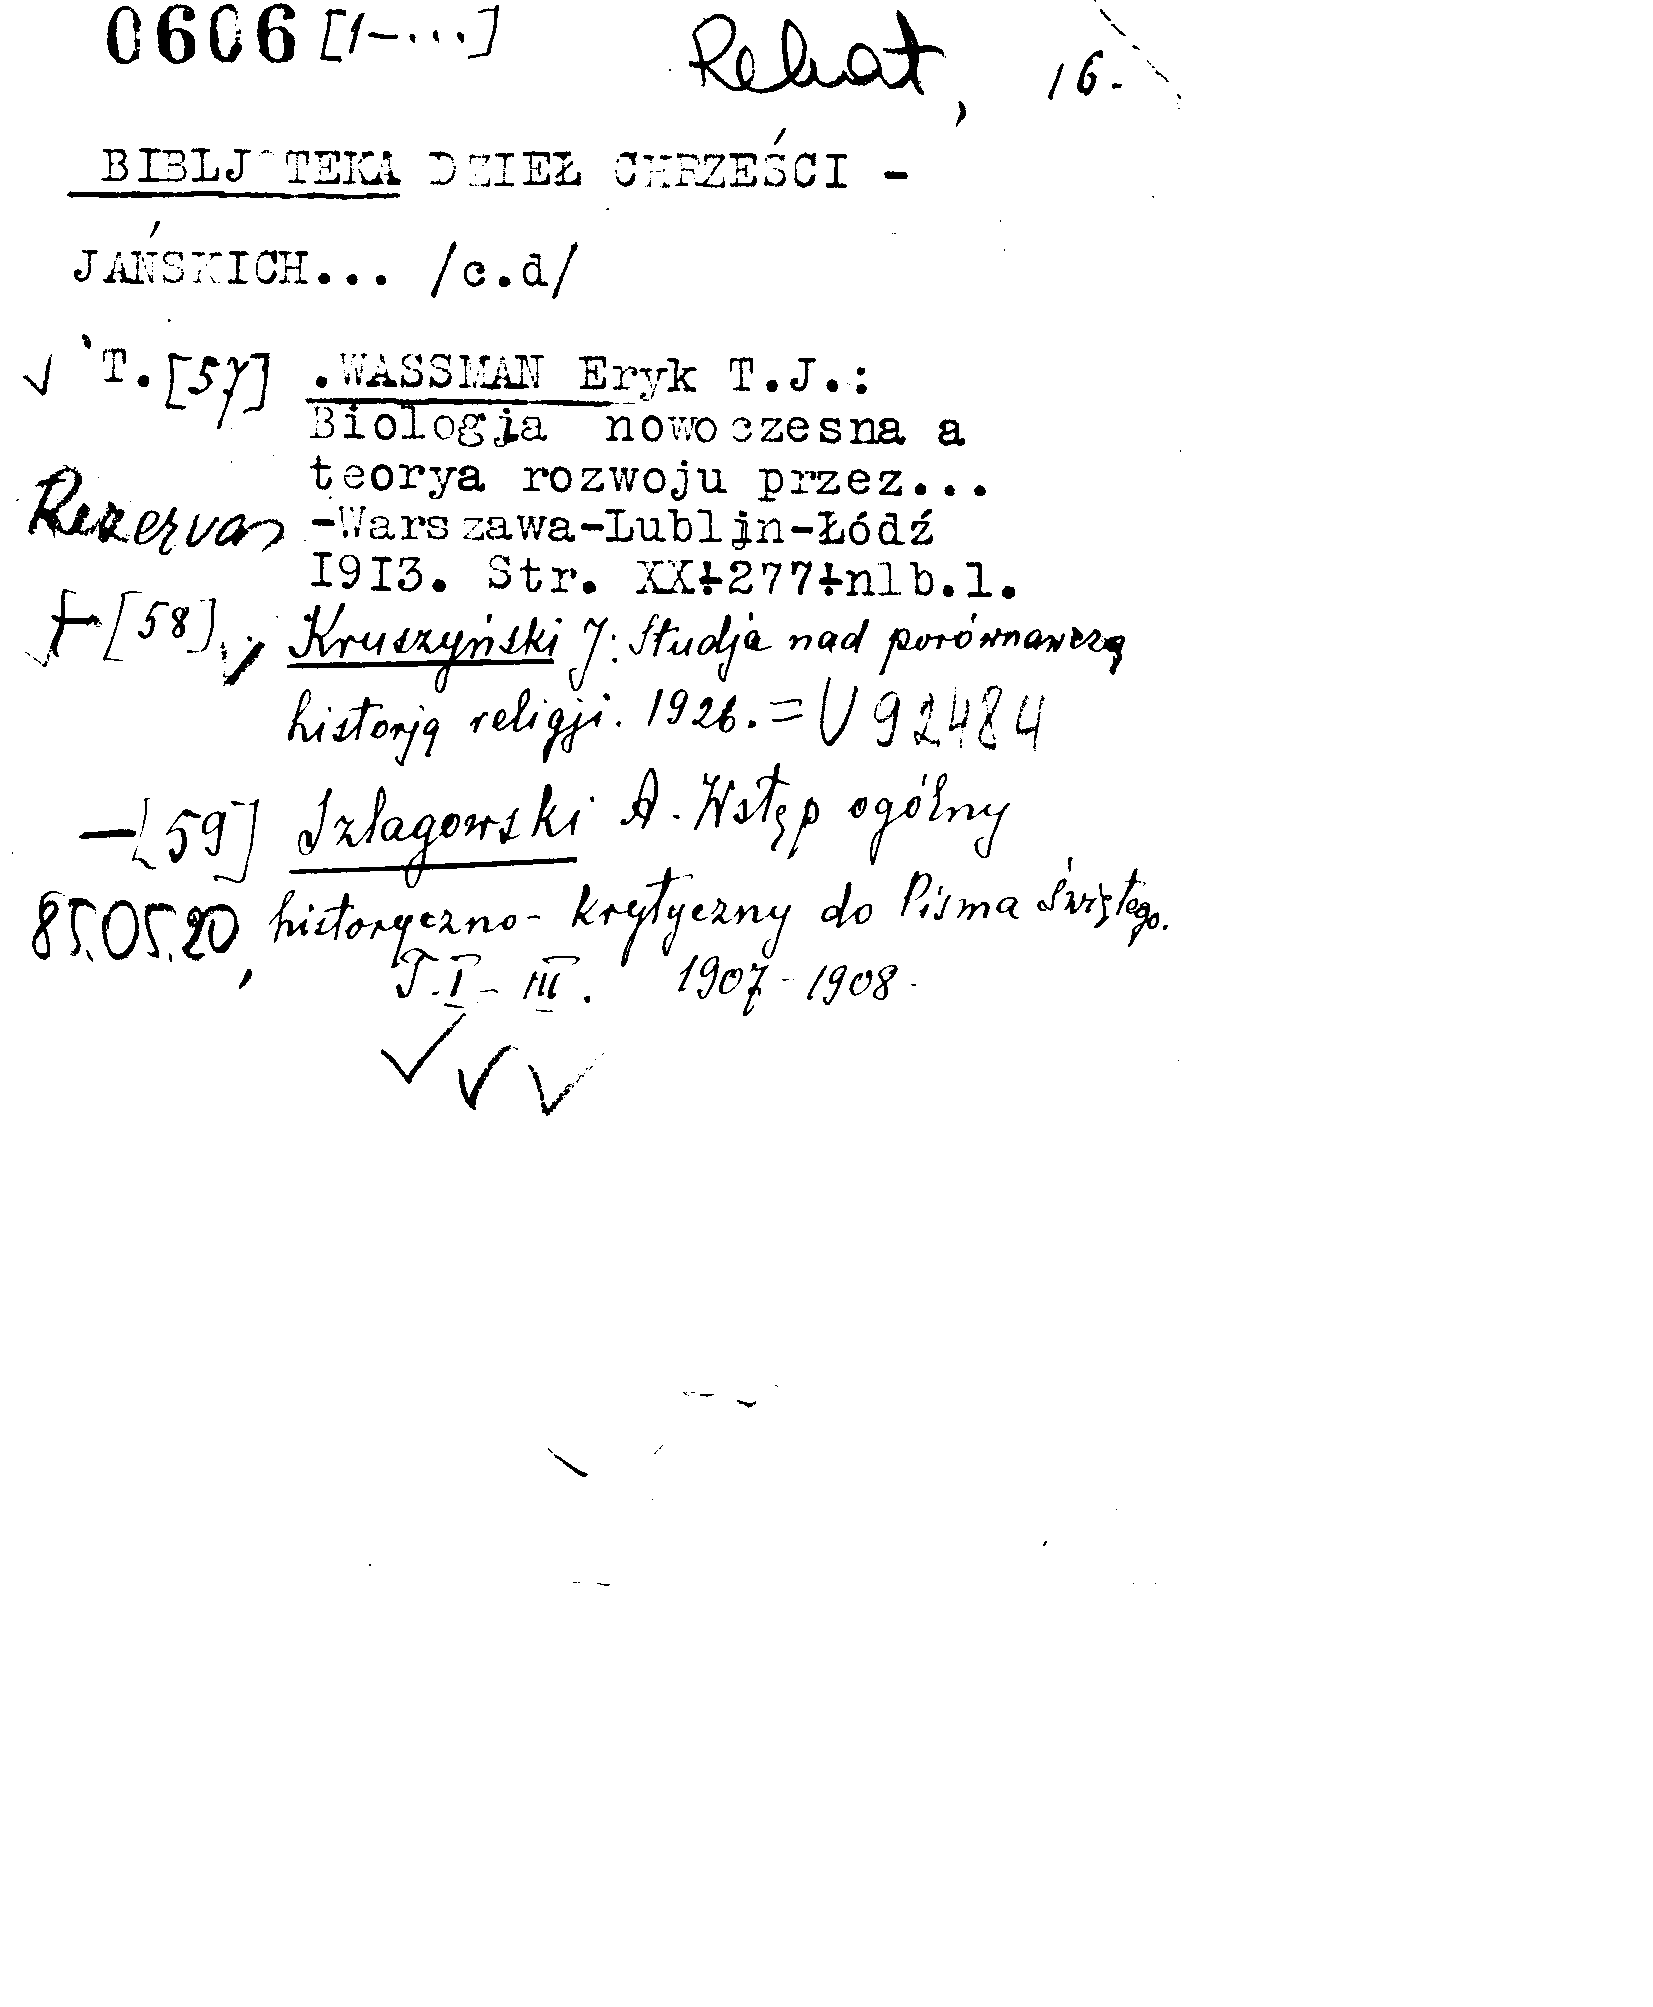 0606 [1-...]
16.
BIBLJOTEKA DZIEŁ CHRZEŚCI -
JAŃSKICH... /c.d/
T. [57] .WASSMAN Eryk T.J.:
Biologja nowoczesna a
teorya rozwoju przez...
Rezerva -Warszawa-Lublin-Łódź
I9I3. Str. XX+277+nlb.1.
[58] Kruszyński J: Studja nad porównawczą
historją religji. 1926. = U 92484
-[59] Szlagowski A. Wstęp ogólny
85.05.20, historyczno- krytyczny do Pisma Świętego.
T. I - III. 1907 - 1908.